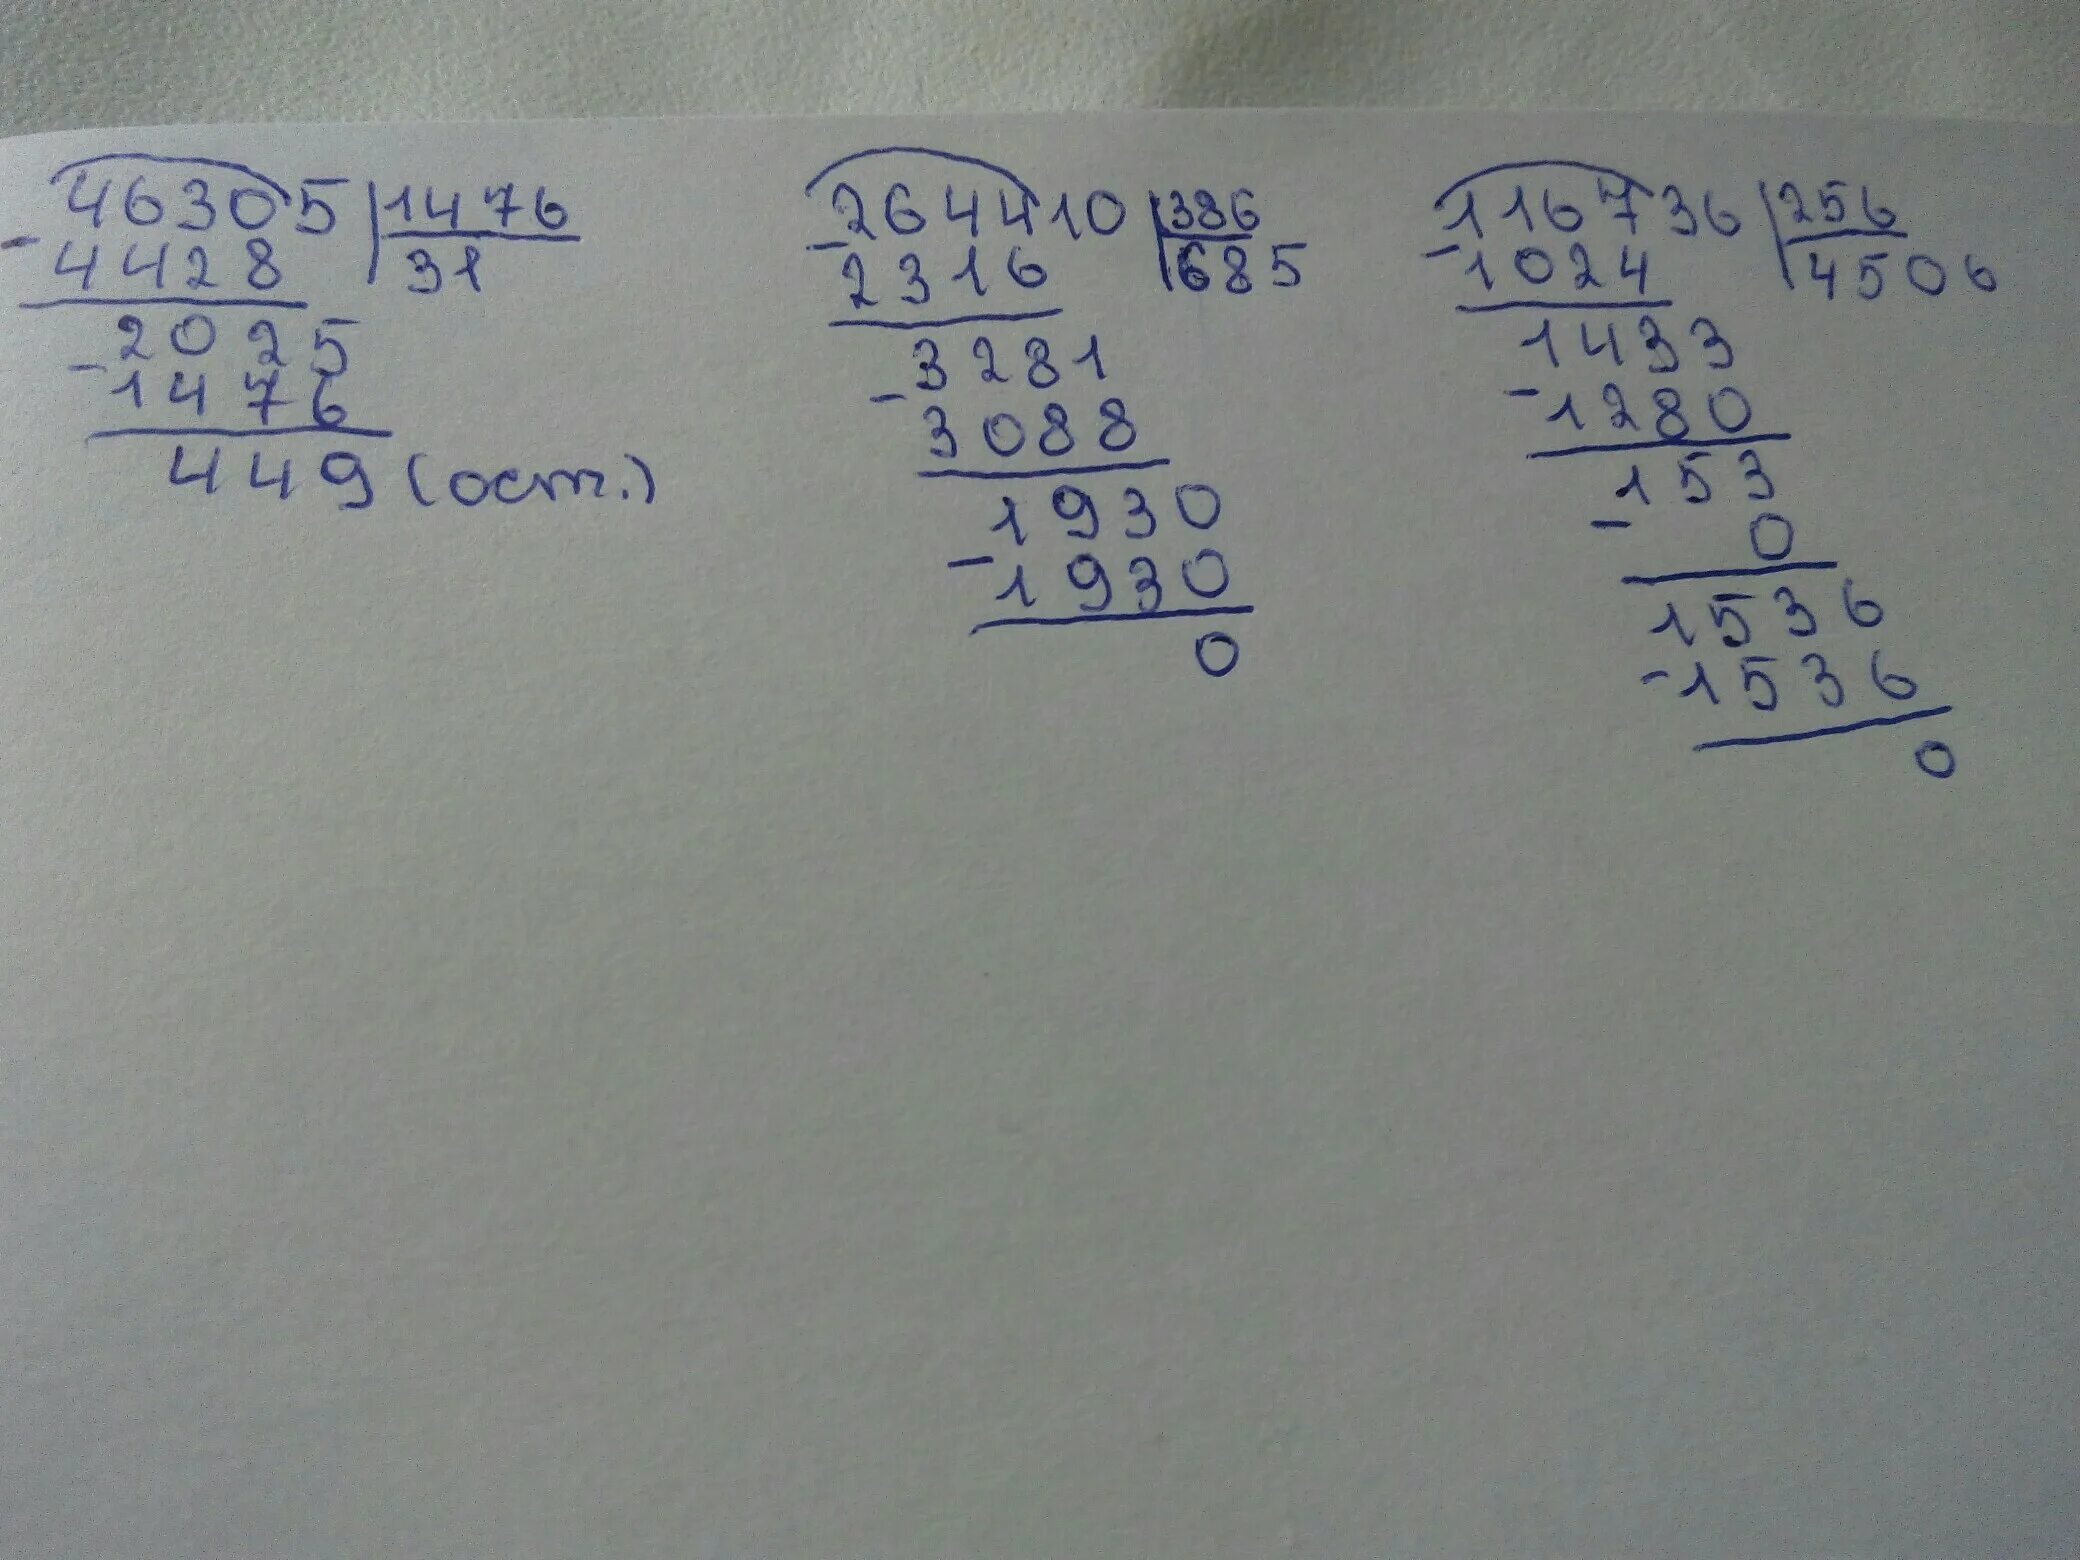 46305 | 1476
- 4428 | 31
2025
- 1476
449 (ост.)
264410 | 386
- 2316 | 685
3281
- 3088
1930
- 1930
0
116736 | 256
- 1024 | 4506
1433
- 1280
153
- 0
1536
- 1536
0